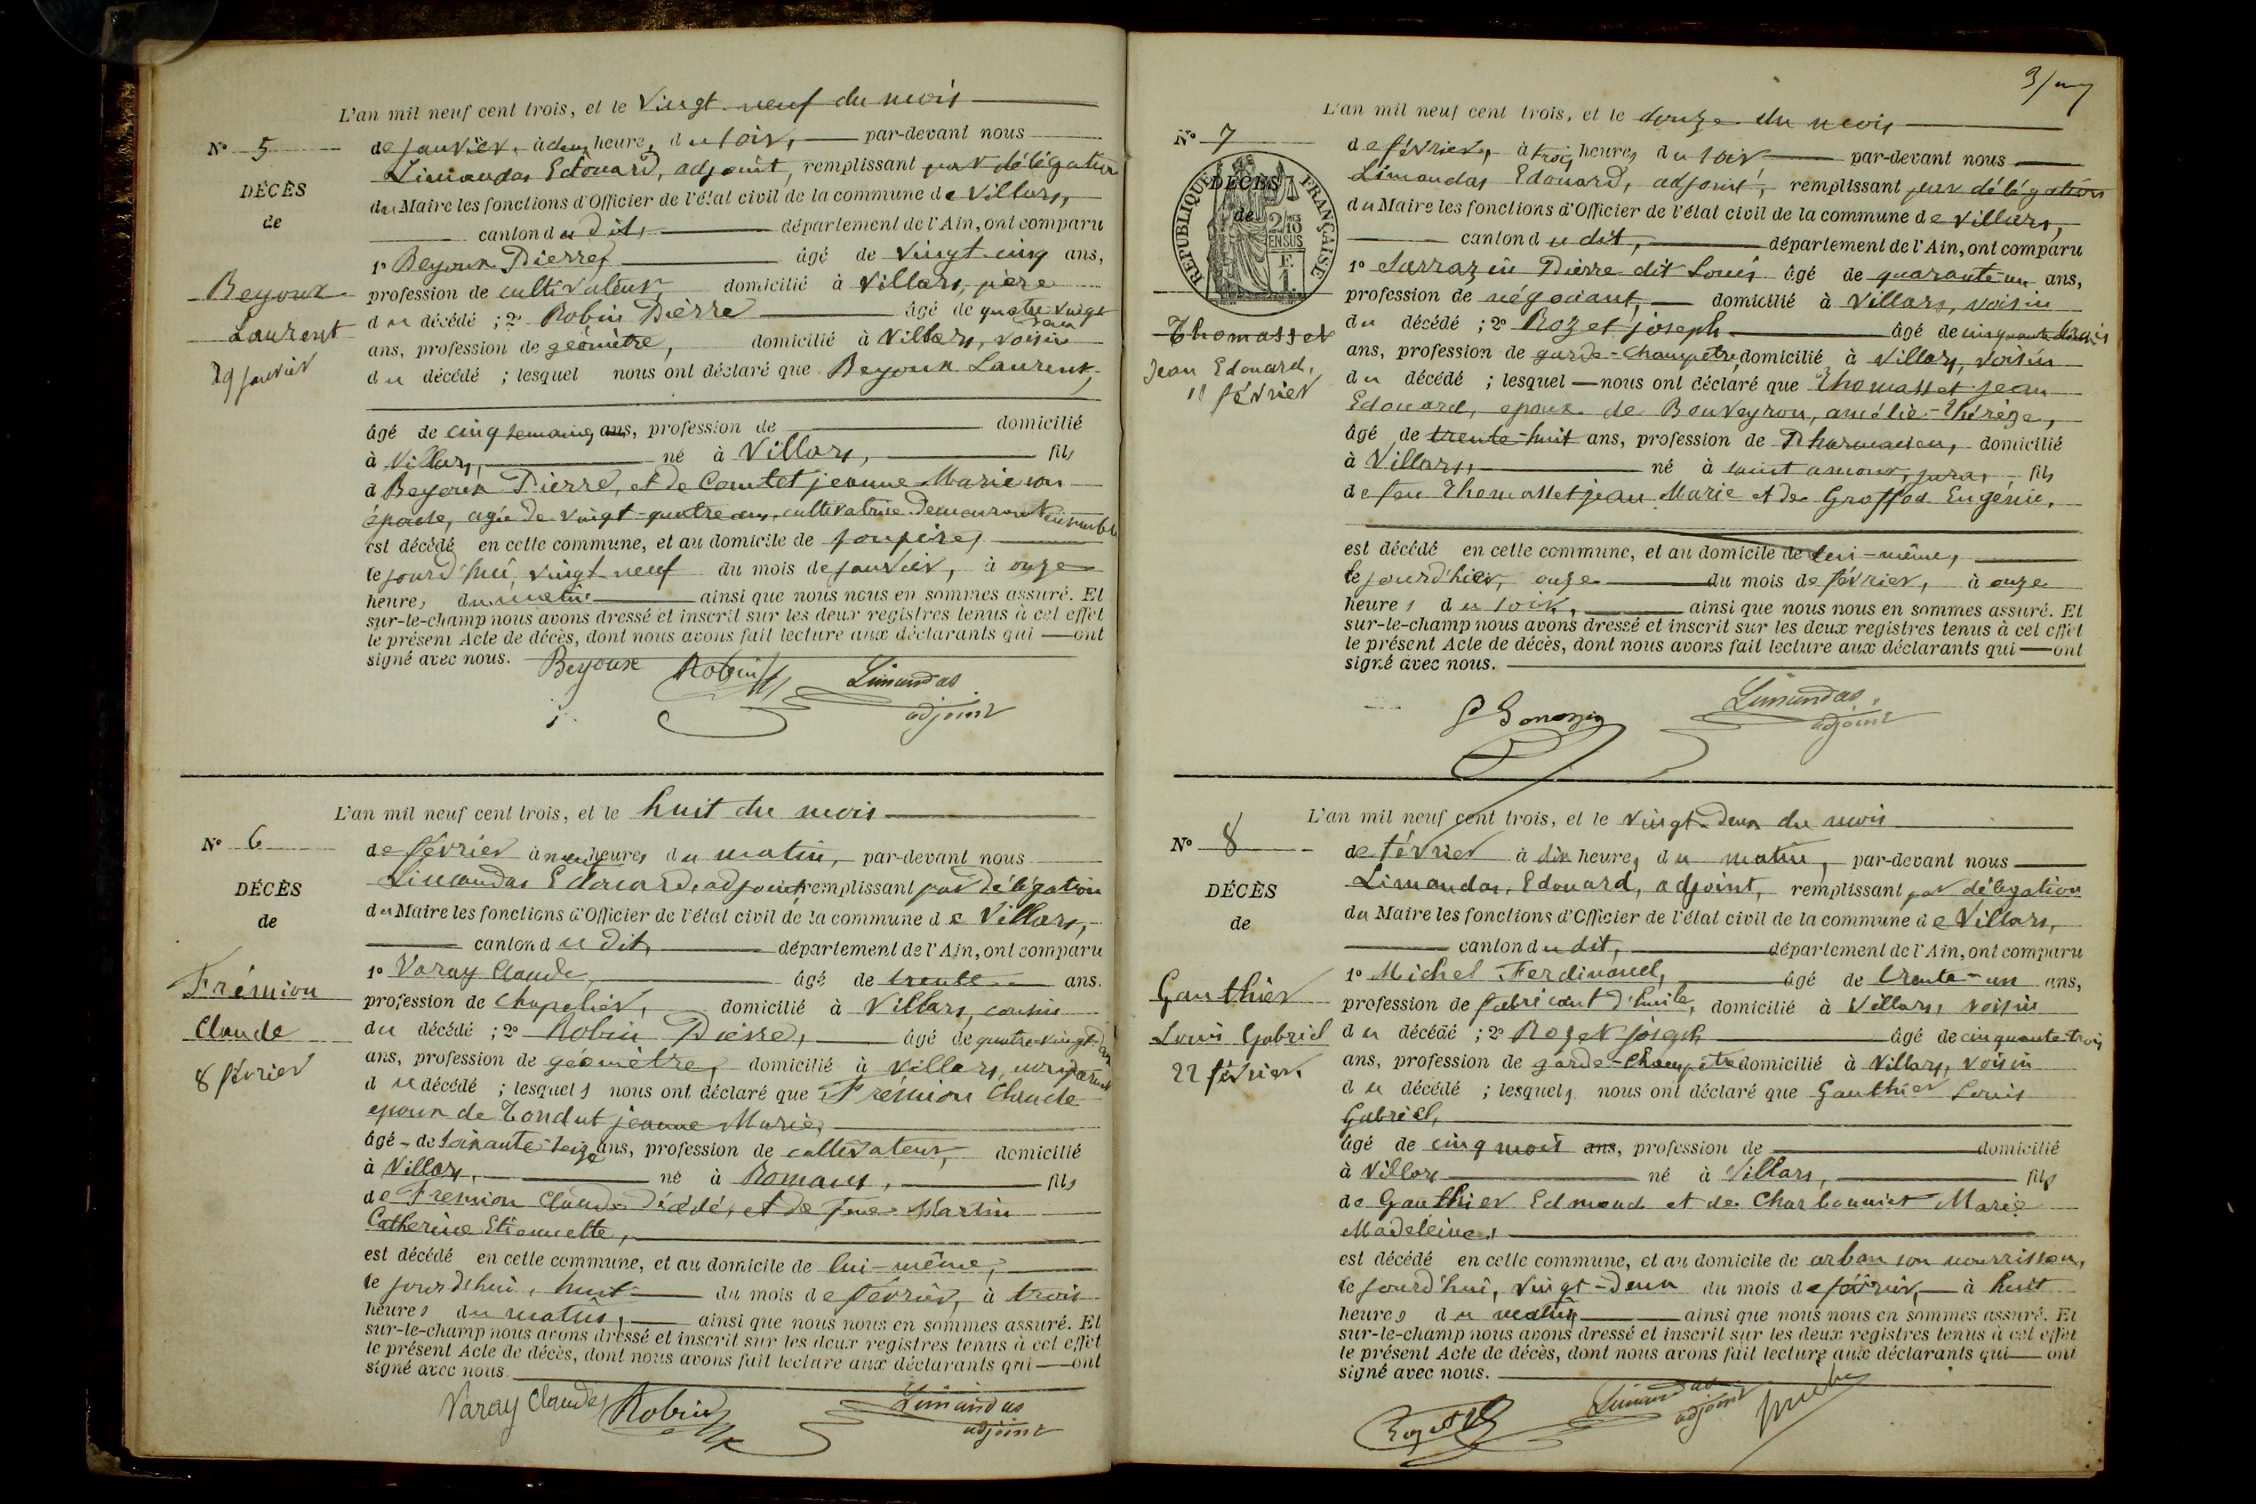 L'an mil neuf cent trois, et le Vingt-neuf du mois
N° 5
de janvier, à deux heures, du soir, par-devant nous
Limandas Edouard, adjoint, remplissant par délégation
DÉCÈS
du Maire les fonctions d'Officier de l'état civil de la commune de Villars,
de
canton du dit, département de l'Ain, ont comparu
1° Beyoux Pierre, âgé de vingt-cinq ans,
Beyoux
profession de cultivateur, domicilié à Villars, père
du décédé ; 2° Robin Pierre âgé de quatre-vingt
deux
Laurent
ans, profession de géomètre, domicilié à Villars, voisin
29 janvier
du décédé ; lesquel nous ont déclaré que Beyoux Laurent,
âgé de cinq semaines ans, profession de domicilié
à Villars, né à Villars, fils
d Beyoux Pierre, et de Comtet jeanne Marie son
épouse, agée de vingt-quatre ans, cultivatrice demeurant ensemble
est décédé en cette commune, et au domicile de son père,
le jourd'hui, vingt-neuf du mois de janvier, à onze
heures du matin ainsi que nous nous en sommes assuré. Et
sur-le-champ nous avons dressé et inscrit sur les deux registres tenus à cet effet
le présent Acte de décès, dont nous avons fait lecture aux déclarants qui ont
signé avec nous.
Beyoux Robin Limandas
adjoint
L'an mil neuf cent trois, et le huit du mois
N° 6
de février à neuf heures du matin, par-devant nous
Limandas Edouard, adjoint remplissant par délégation
DÉCÈS
du Maire les fonctions d'Officier de l'état civil de la commune de Villars,
de
canton du dit, département de l'Ain, ont comparu
1° Varay Claude, âgé de trente ans.
Frémion
profession de Chapelier, domicilié à Villars, cousin
Claude
du décédé ; 2° Robin Pierre, âgé de quatre-vingt deux
ans, profession de géomètre, domicilié à Villars, non parent
8 février
du décédé ; lesquels nous ont déclaré que Frémion Claude
epoux de Tondut jeanne Marie,
âgé de soixante-seize ans, profession de cultivateur, domicilié
à Villars, né à Romans, fils
de Fremion Claude décédé, et de Martin
Catherine Etiennette,
est décédé en cette commune, et au domicile de lui-même,
le jourd'hui, huit du mois de février, à trois
heures du matin, ainsi que nous nous en sommes assuré. Et
sur-le-champ nous avons dressé et inscrit sur les deux registres tenus à cet effet
le présent Acte de décès, dont nous avons fait lecture aux déclarants qui ont
signé avec nous
Varay Claude Robin Limandas
adjoint
3/
L'an mil neuf cent trois, et le douze du mois
N° 7
de février, à trois heures du soir par-devant nous
RÉPUBLIQUE FRANÇAISE
2/10 EN SUS
F. 1.
DÉCÈS
Limandas Edouard, adjoint, remplissant par délégation
de
du Maire les fonctions d'Officier de l'état civil de la commune de Villars,
canton du dit, département de l'Ain, ont comparu
1° Sarrazin Pierre dit Louis âgé de quarante-un ans,
profession de négociant, domicilié à Villars, voisin
Thomasset
du décédé ; 2° Rozet joseph âgé de cinquante-trois
Jean Edouard,
ans, profession de garde-champêtre, domicilié à Villars, voisin
11 février
du décédé ; lesquel nous ont déclaré que Thomasset jean
Edouard, epoux de Bouveyron, amélie-Thérèze,
âgé de trente-huit ans, profession de Pharmacien, domicilié
à Villars, né à saint amour, jura, fils
de feu Thomasset jean Marie et de Groffod Eugénie.
est décédé en cette commune, et au domicile de lui-même,
le jourd'hier, onze du mois de février, à onze
heures du soir, ainsi que nous nous en sommes assuré. Et
sur-le-champ nous avons dressé et inscrit sur les deux registres tenus à cet effet
le présent Acte de décès, dont nous avons fait lecture aux déclarants qui ont
signé avec nous.
Limandas
adjoint
L'an mil neuf cent trois, et le vingt-deux du mois
N° 8
de février à dix heures du matin, par-devant nous
Limandas, Edouard, adjoint, remplissant par délégation
DÉCÈS
du Maire les fonctions d'Officier de l'état civil de la commune de Villars,
de
canton du dit, département de l'Ain, ont comparu
1° Michel Ferdinand, âgé de trente-un ans,
Gauthier
profession de fabricant d'huile, domicilié à Villars, voisin
Louis Gabriel
du décédé ; 2° Rozet joseph âgé de cinquante-trois
22 février.
ans, profession de garde-champêtre domicilié à Villars, voisin
du décédé ; lesquels nous ont déclaré que Gauthier Louis
Gabriel,
âgé de cinq mois ans, profession de domicilié
à Villars né à Villars, fils
de Gauthier Edmond et de Charbonnier Marie
Madeleine,
est décédé en cette commune, et au domicile de arban son nourrisson,
le jourd'hui, vingt-deux du mois de février, à huit
heures du matin ainsi que nous nous en sommes assuré. Et
sur-le-champ nous avons dressé et inscrit sur les deux registres tenus à cet effet
le présent Acte de décès, dont nous avons fait lecture aux déclarants qui ont
signé avec nous.
Rozet Limandas
adjoint